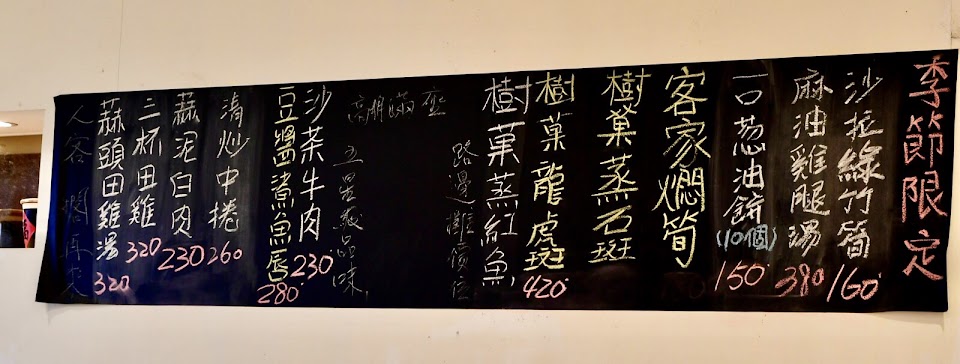 季節限定
沙拉綠竹筍 160
麻油雞腿湯 380
一口葱油餅(10個) 150
客家燜筍
樹菓蒸石斑
樹菓龍虎斑 420
樹菓蒸紅魚
路邊攤價位
高朋滿座
五星級品味
沙茶牛肉 230
豆醬煮魚唇 280
清炒中捲 260
蒜泥白肉 230
三杯田雞 320
蒜頭田雞湯 320
人客